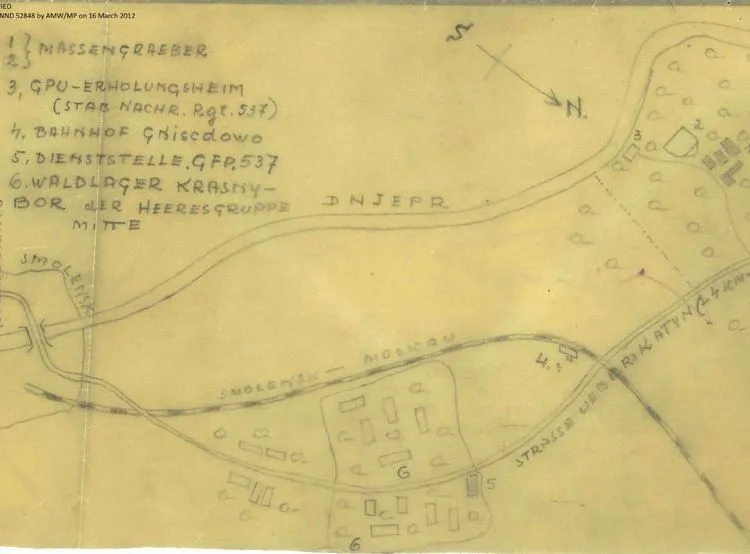 FIED
NND 52848 by AMW/MP on 16 March 2012
1 } MASSENGRAEBER
2 }
3, GPU-ERHOLUNGSHEIM
(STAB NACHR. Rgt. 537)
4, BAHNHOF GNiSCDOWO
5, DIENSTSTELLE. GFP. 537
6. WALDLAGER KRASNY-
BOR der HEERESGRUPPE
MITTE
S
N.
3
2
DNJEPR
SMOLENSK
SMOLENSK - MOSKAU
4,
STRASSE UEBER KATYN (24 KM-
6
5
6